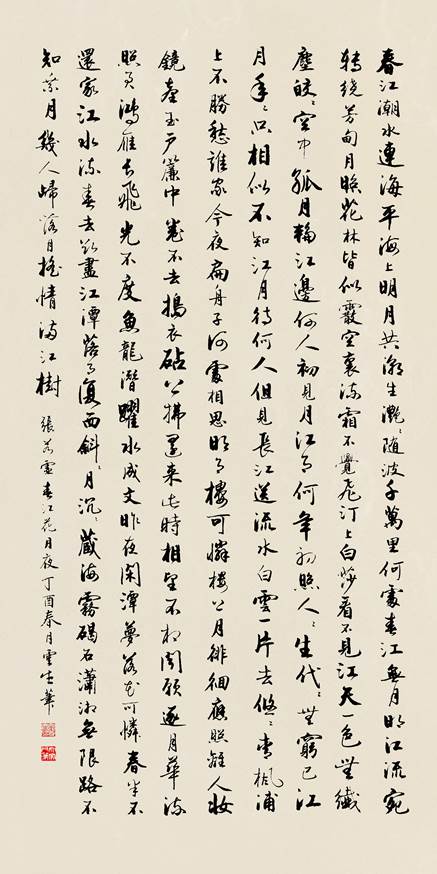 春江潮水連海平海上明月共潮生灩〻随波千萬里何處春江無月明江流宛
轉繞芳甸月照花林皆似霰空裏流霜不覺飛汀上白莎看不見江天一色無纖
塵皎〻空中孤月輪江邊何人初見月江月何年初照人〻生代〻無窮已江
月年〻只相似不知江月待何人但見長江送流水白雲一片去悠〻青楓浦
上不勝愁誰家今夜扁舟子何處相思明月樓可憐樓上月徘徊應照離人妝
鏡臺玉户簾中卷不去搗衣砧上拂還来此時相望不相聞願逐月華流
照君鴻雁長飛光不度魚龍潛躍水成文昨夜閑潭夢落花可憐春半不
還家江水流春去欲盡江潭落月復西斜〻月沉〻藏海霧碣石瀟湘無限路不
知乘月幾人歸落月搖情满江樹 張若虚春江花月夜丁酉春月雲